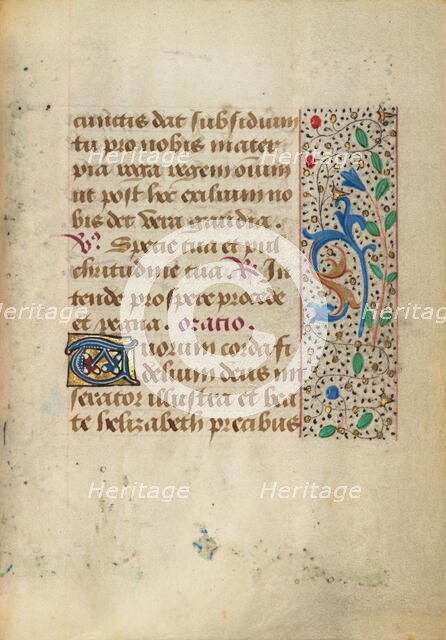 cunctis dat subsidium
tu pro nobis mater
pia roga regem ovium
ut post hoc exilium no
bis det vera gaudia.
V. Specie tua et pul
chritudine tua R. In
tende prospere procede
et regna. oratio.
Tuorum corda fi
delium deus mi
serator illustra et bea
te helizabeth precibus
Heritage
Heritage
Heritage
Heritage
Heritage
Heritage